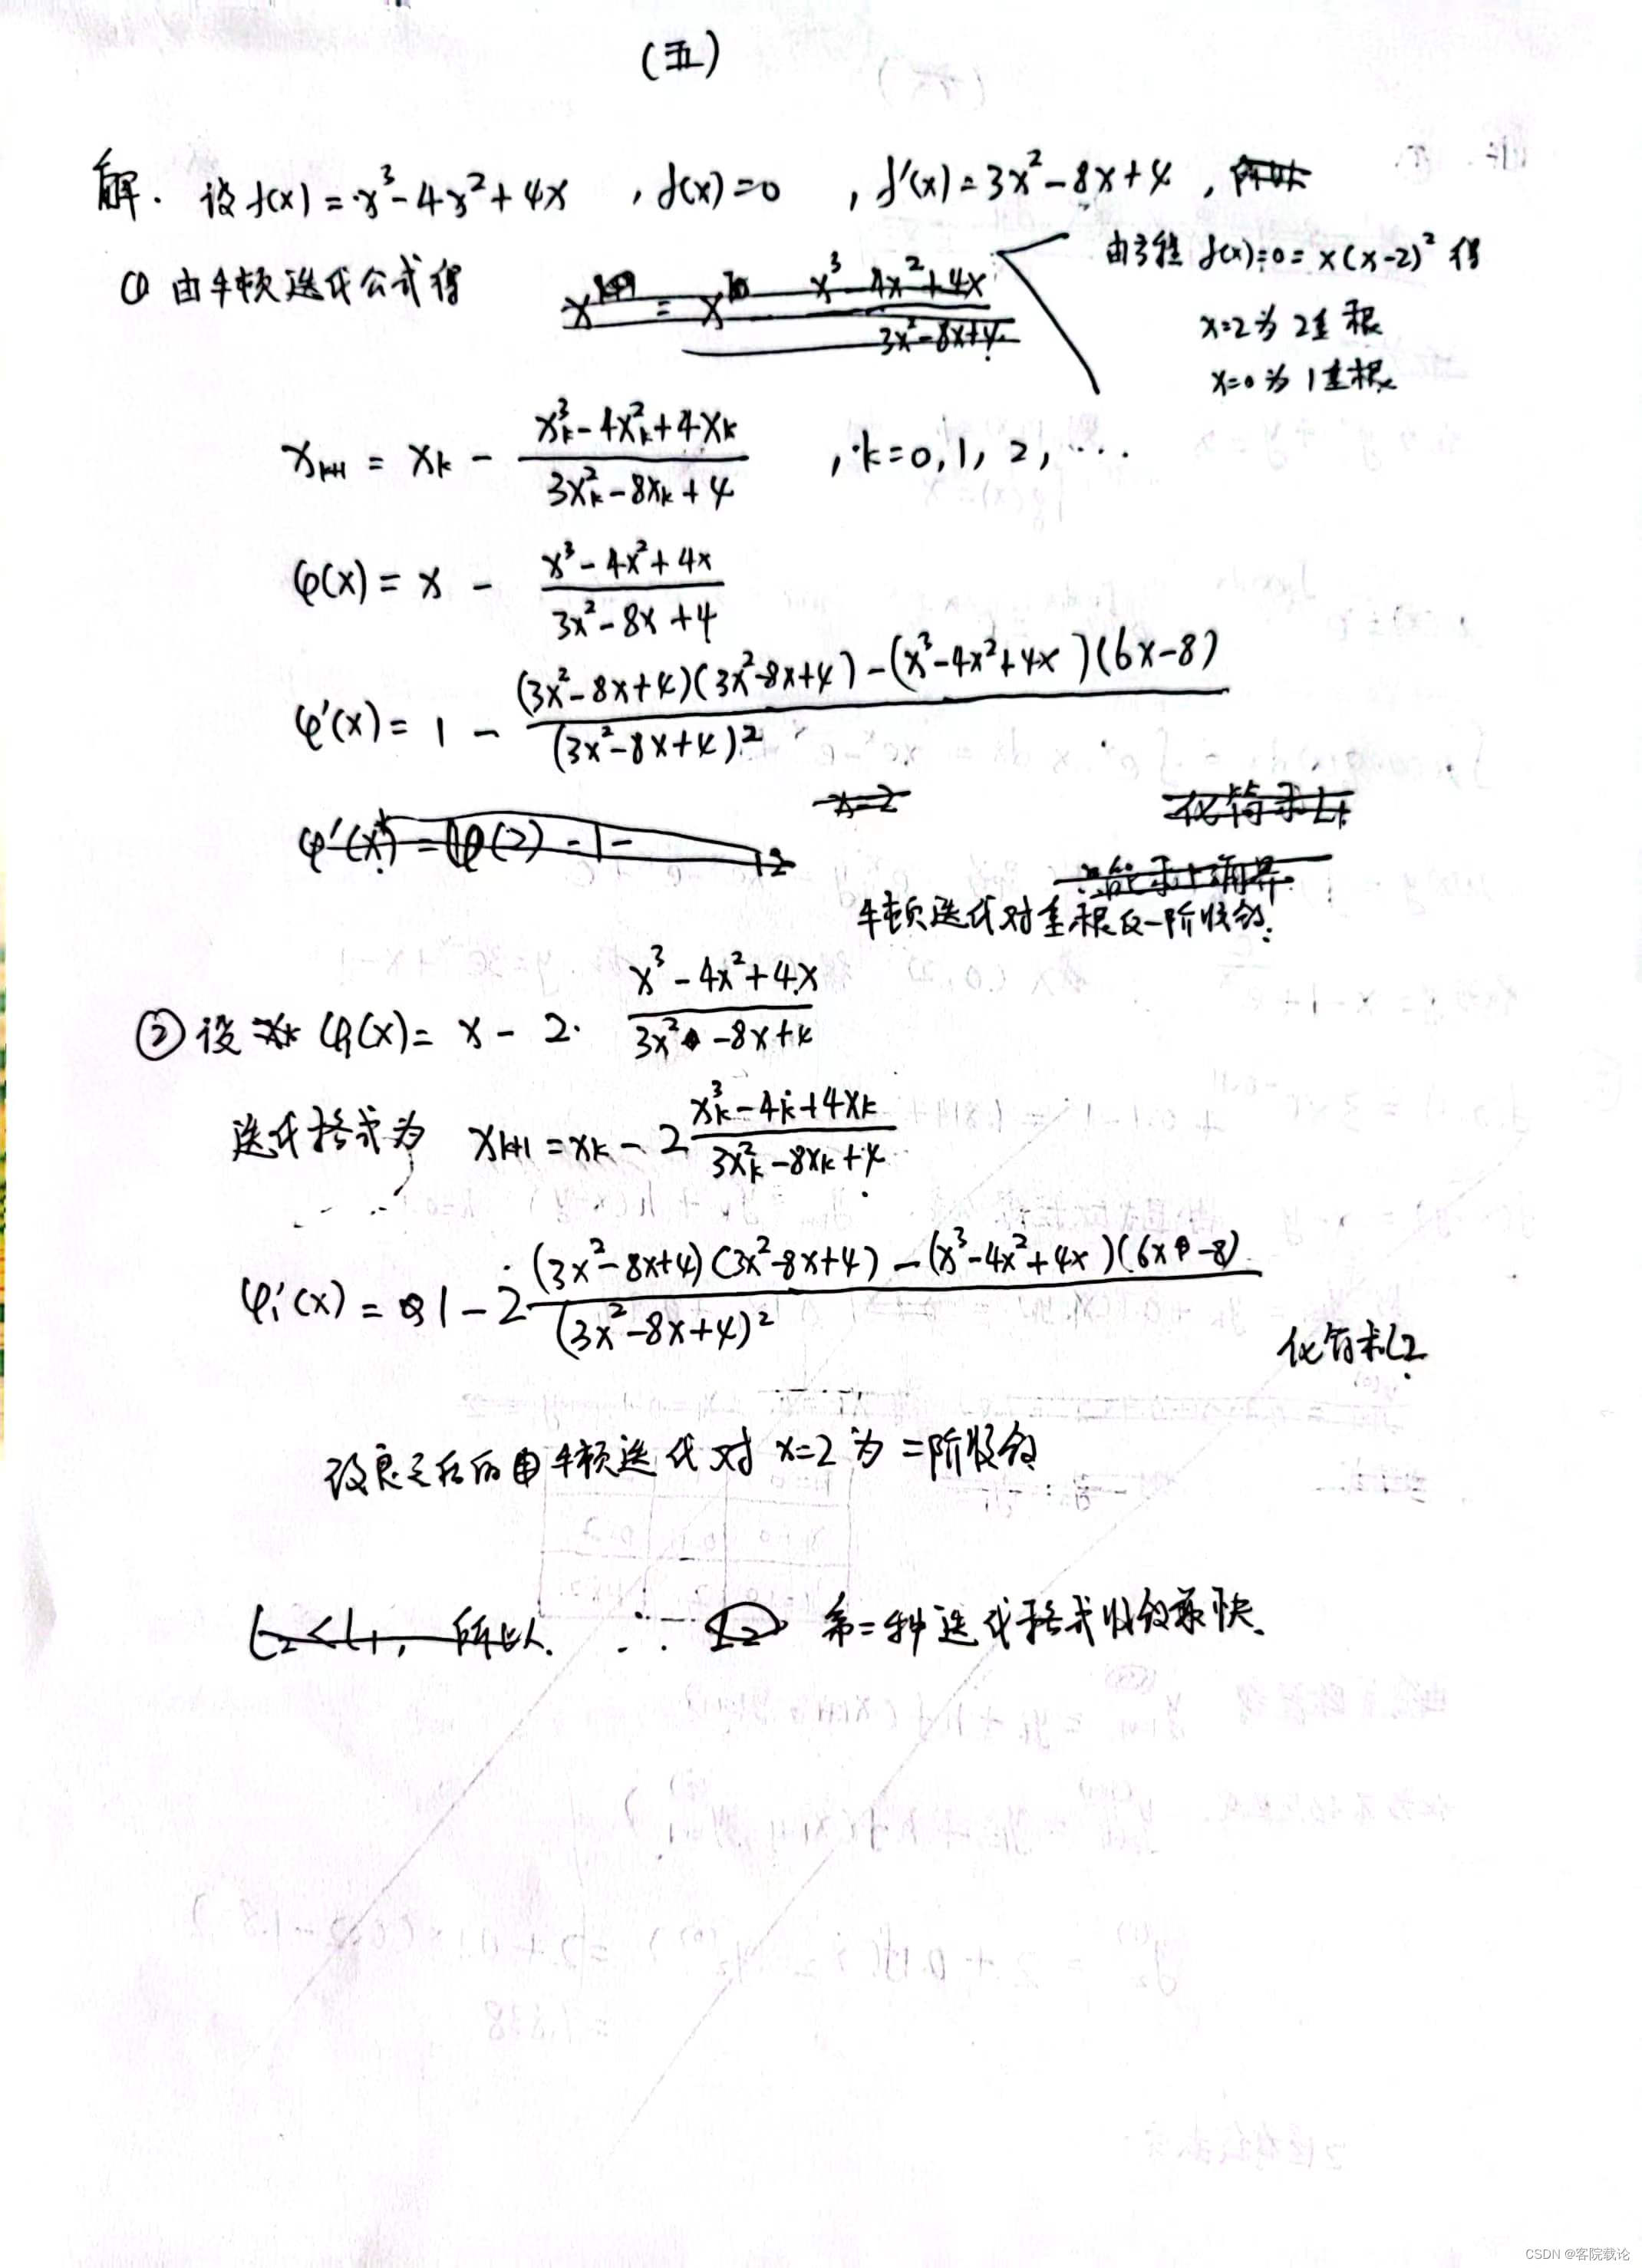 (五)
解. 设f(x)=x³-4x²+4x , f(x)=0 , f'(x)=3x²-8x+4 , 所以
① 由牛顿迭代公式得
由方程 f(x)=0=x(x-2)² 得
x=2为2重根
x=0为1重根
x_{k+1} = x_k - (x_k³-4x_k²+4x_k)/(3x_k²-8x_k+4) , k=0,1,2,…
φ(x) = x - (x³-4x²+4x)/(3x²-8x+4)
φ'(x) = 1 - ((3x²-8x+4)(3x²-8x+4)-(x³-4x²+4x)(6x-8))/(3x²-8x+4)²
x=2
牛顿迭代对重根仅一阶收敛.
② 设 φ₁(x) = x - 2· (x³-4x²+4x)/(3x²-8x+4)
迭代格式为 x_{k+1} = x_k - 2 (x_k³-4k+4x_k)/(3x_k²-8x_k+4)
φ₁'(x) = 1 - 2 ((3x²-8x+4)(3x²-8x+4)-(x³-4x²+4x)(6x-8))/(3x²-8x+4)²
化简求L2
改良之后的牛顿迭代对x=2为二阶收敛
L₂<L₁, 所以 ∴ 第二种迭代格式收敛最快.
CSDN @客院载论